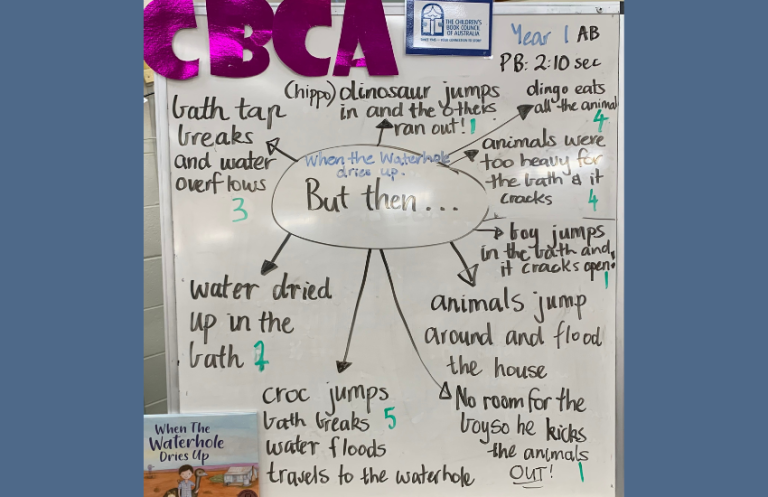 CBCA
THE CHILDREN'S
BOOK COUNCIL
OF AUSTRALIA
Year 1 AB
PB: 2:10 sec
bath tap
breaks
and water
overflows
3
(hippo) dinosaur jumps
in and the others
ran out! 1
dingo eats
all the animal
4
animals were
too heavy for
the bath & it
cracks 4
When the Waterhole
dries up.
But then...
boy jumps
in the bath and
it cracks open.
1
water dried
up in the
bath
animals jump
around and flood
the house
croc jumps
bath breaks 5
water floods
travels to the waterhole
No room for the
boy so he kicks
the animals
OUT! 1
When The
Waterhole
Dries Up